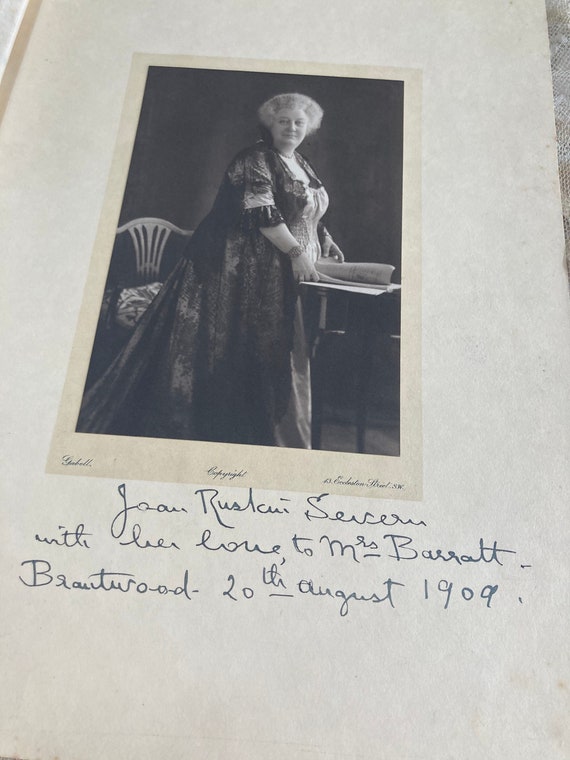 Gabell. Copyright 13. Eccleston Street. S.W.
Joan Ruskin Severn
with her love, to Mrs Barratt -
Brantwood - 20th august 1909.